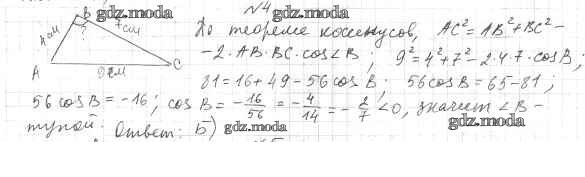 N4
B gdz.moda
4см
7см
?
A
9см
C
По теореме косинусов, AC²=AB²+BC²-
-2·AB·BC·cos∠B; 9²=4²+7²-2·4·7·cosB;
81=16+49-56cosB; 56cosB=65-81;
56cosB=-16; cosB=-16/56=-4/14=-2/7<0, значит ∠B-
тупой. Ответ: Б) gdz.moda
gdz.moda